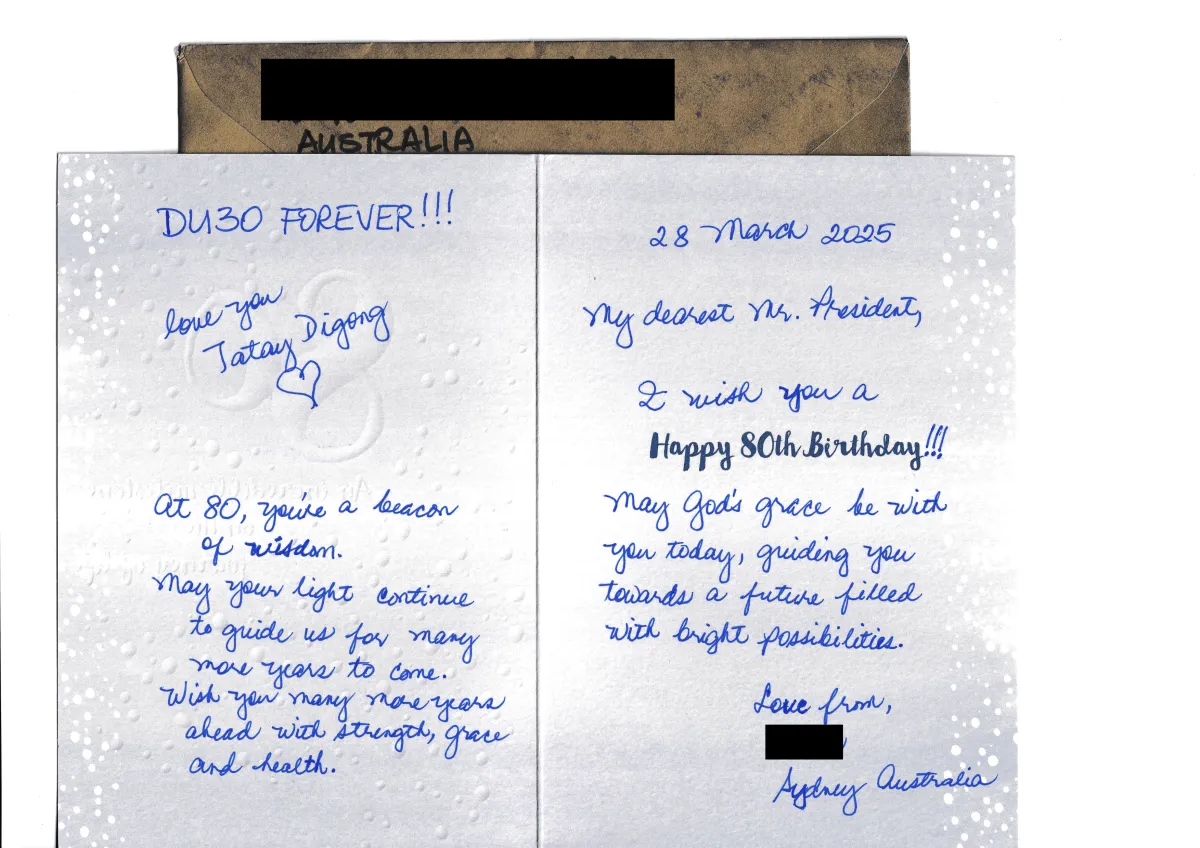 AUSTRALIA
DU30 FOREVER!!!
love you
Tatay Digong
At 80, you're a beacon
of wisdom.
May your light continue
to guide us for many
more years to come.
Wish you many more years
ahead with strength, grace
and health.
28 March 2025
My dearest Mr. President,
I wish you a
Happy 80th Birthday!!!
May God's grace be with
you today, guiding you
towards a future filled
with bright possibilities.
Love from,
Sydney Australia